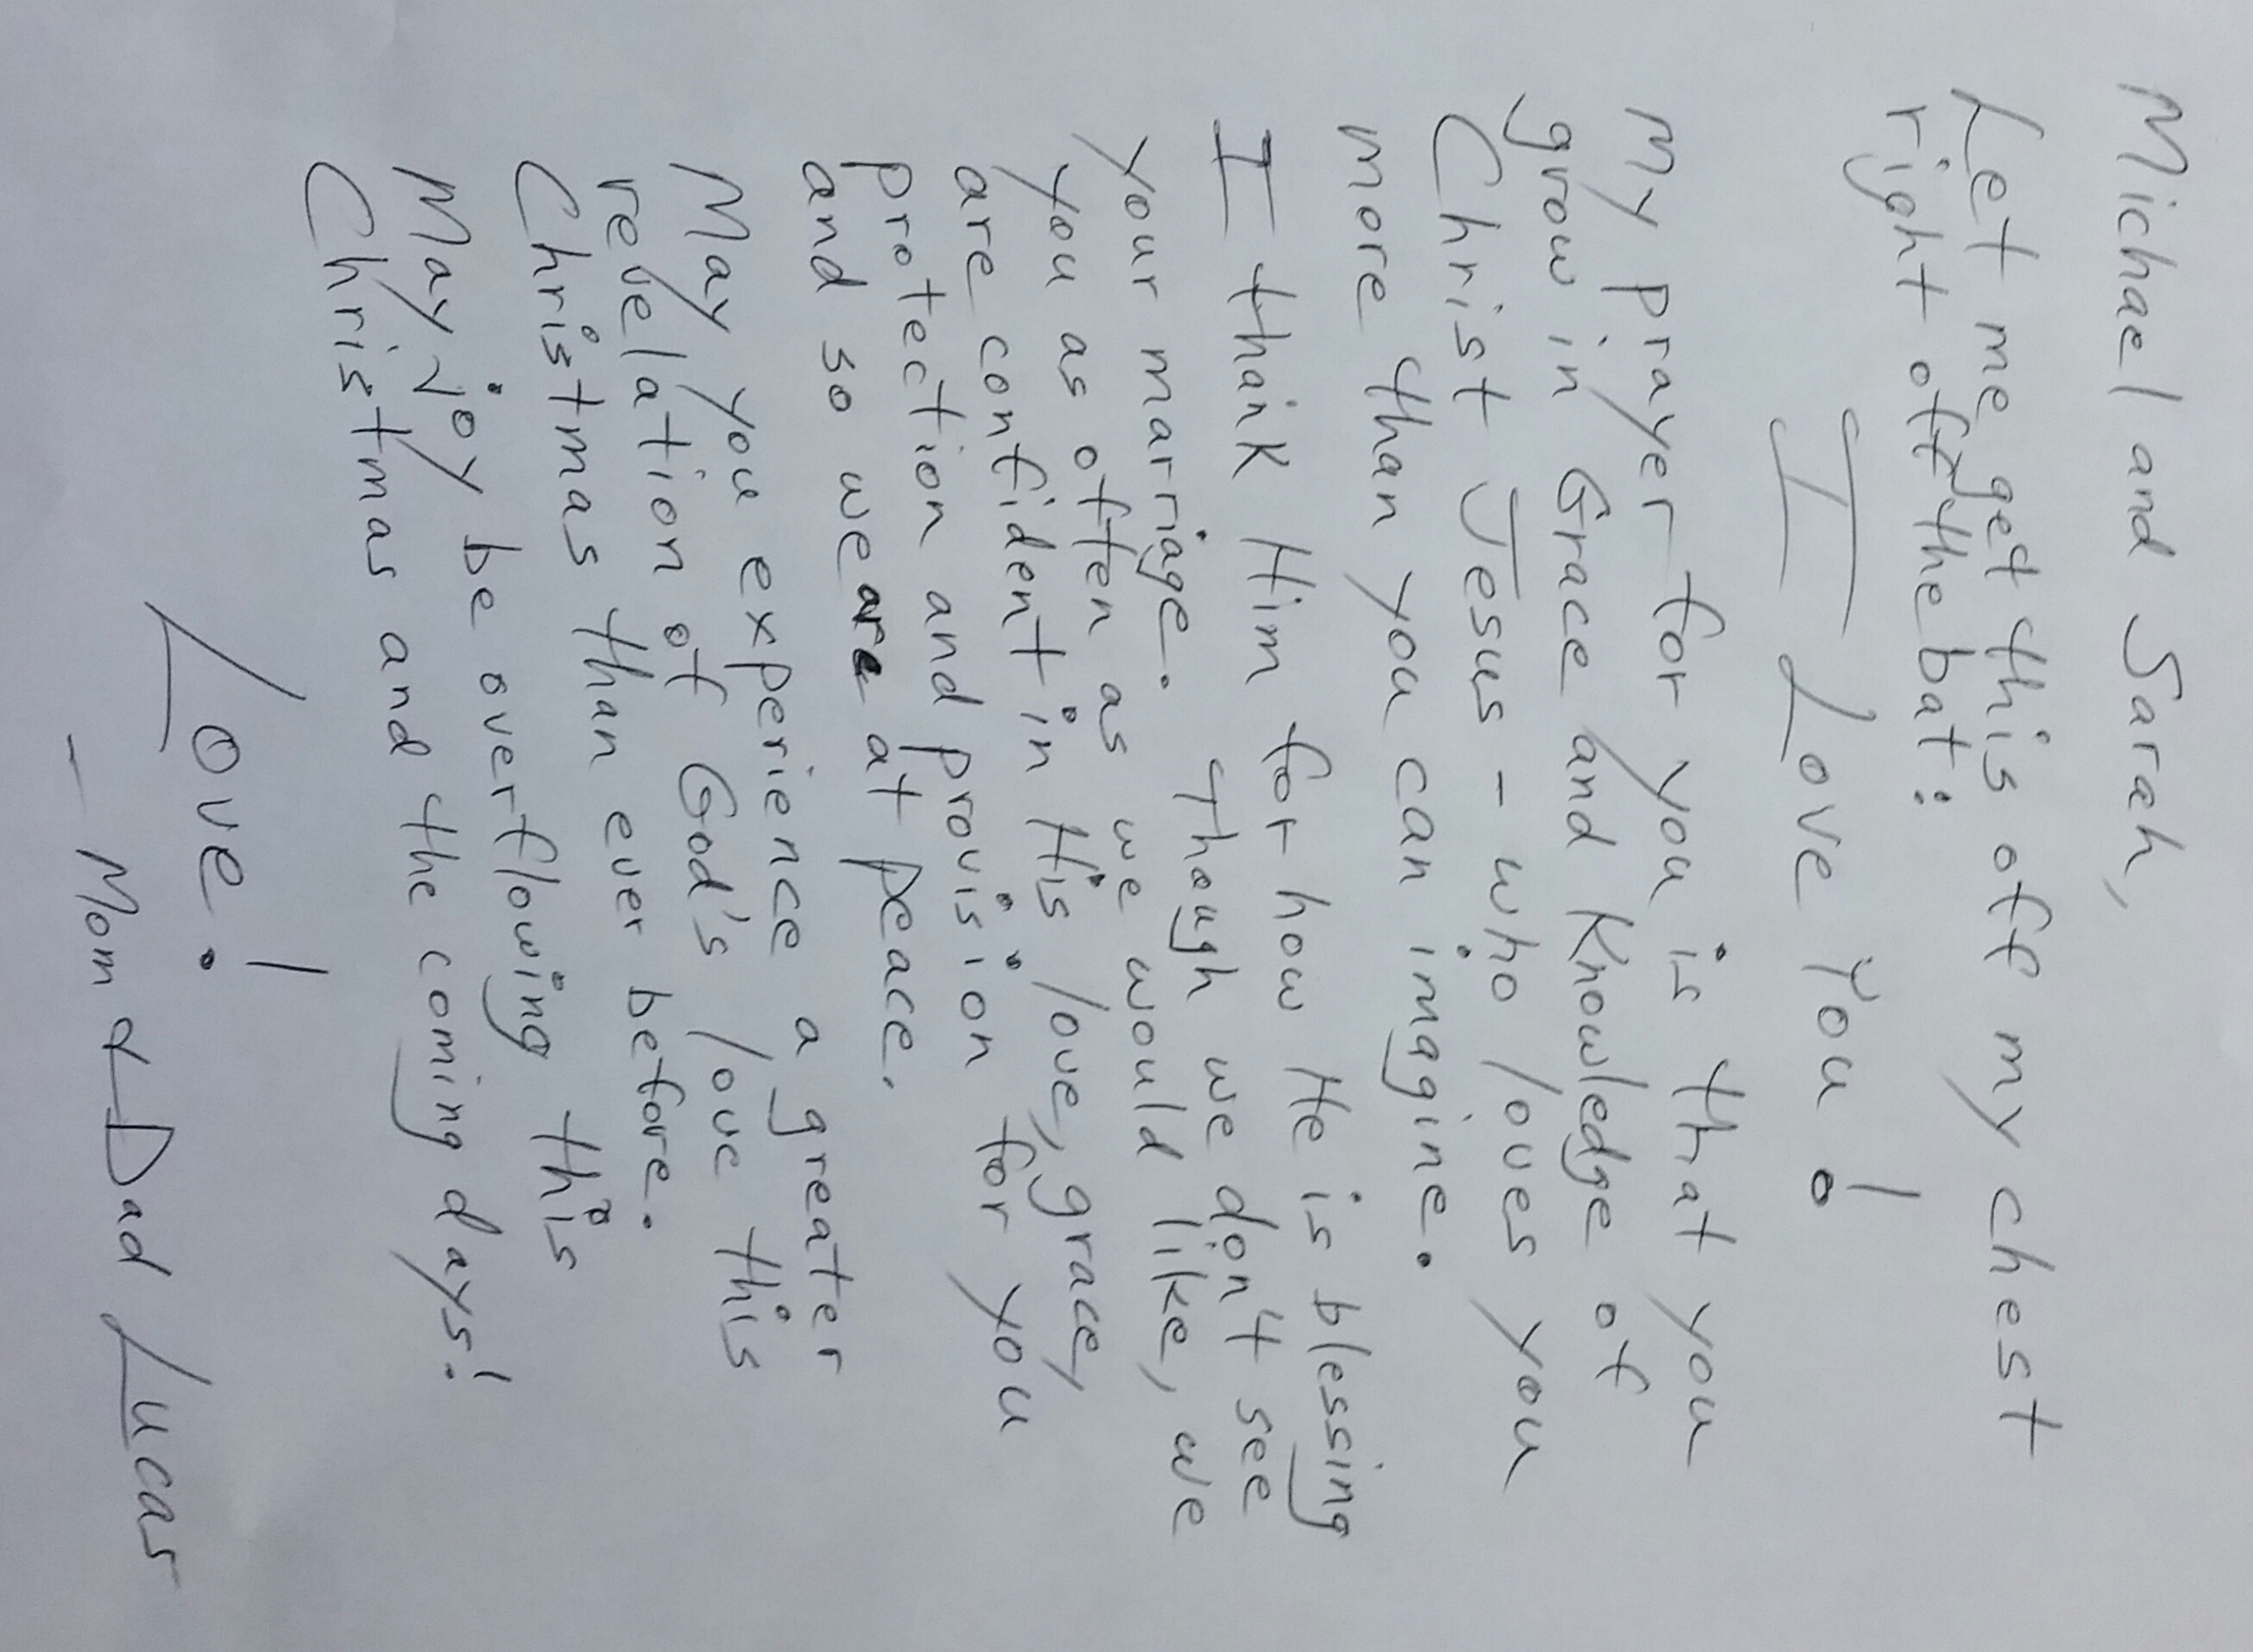 Michael and Sarah,
Let me get this off my chest
right off the bat:
I Love You!
My prayer for you is that you
grow in Grace and Knowledge of
Christ Jesus - who loves you
more than you can imagine.
I thank Him for how He is blessing
your marriage. Though we don't see
you as often as we would like, we
are confident in His love, grace,
protection and provision for you
and so we are at peace.
May you experience a greater
revelation of God's love this
Christmas than ever before.
May joy be overflowing this
Christmas and the coming days!
Love!
- Mom & Dad Lucas